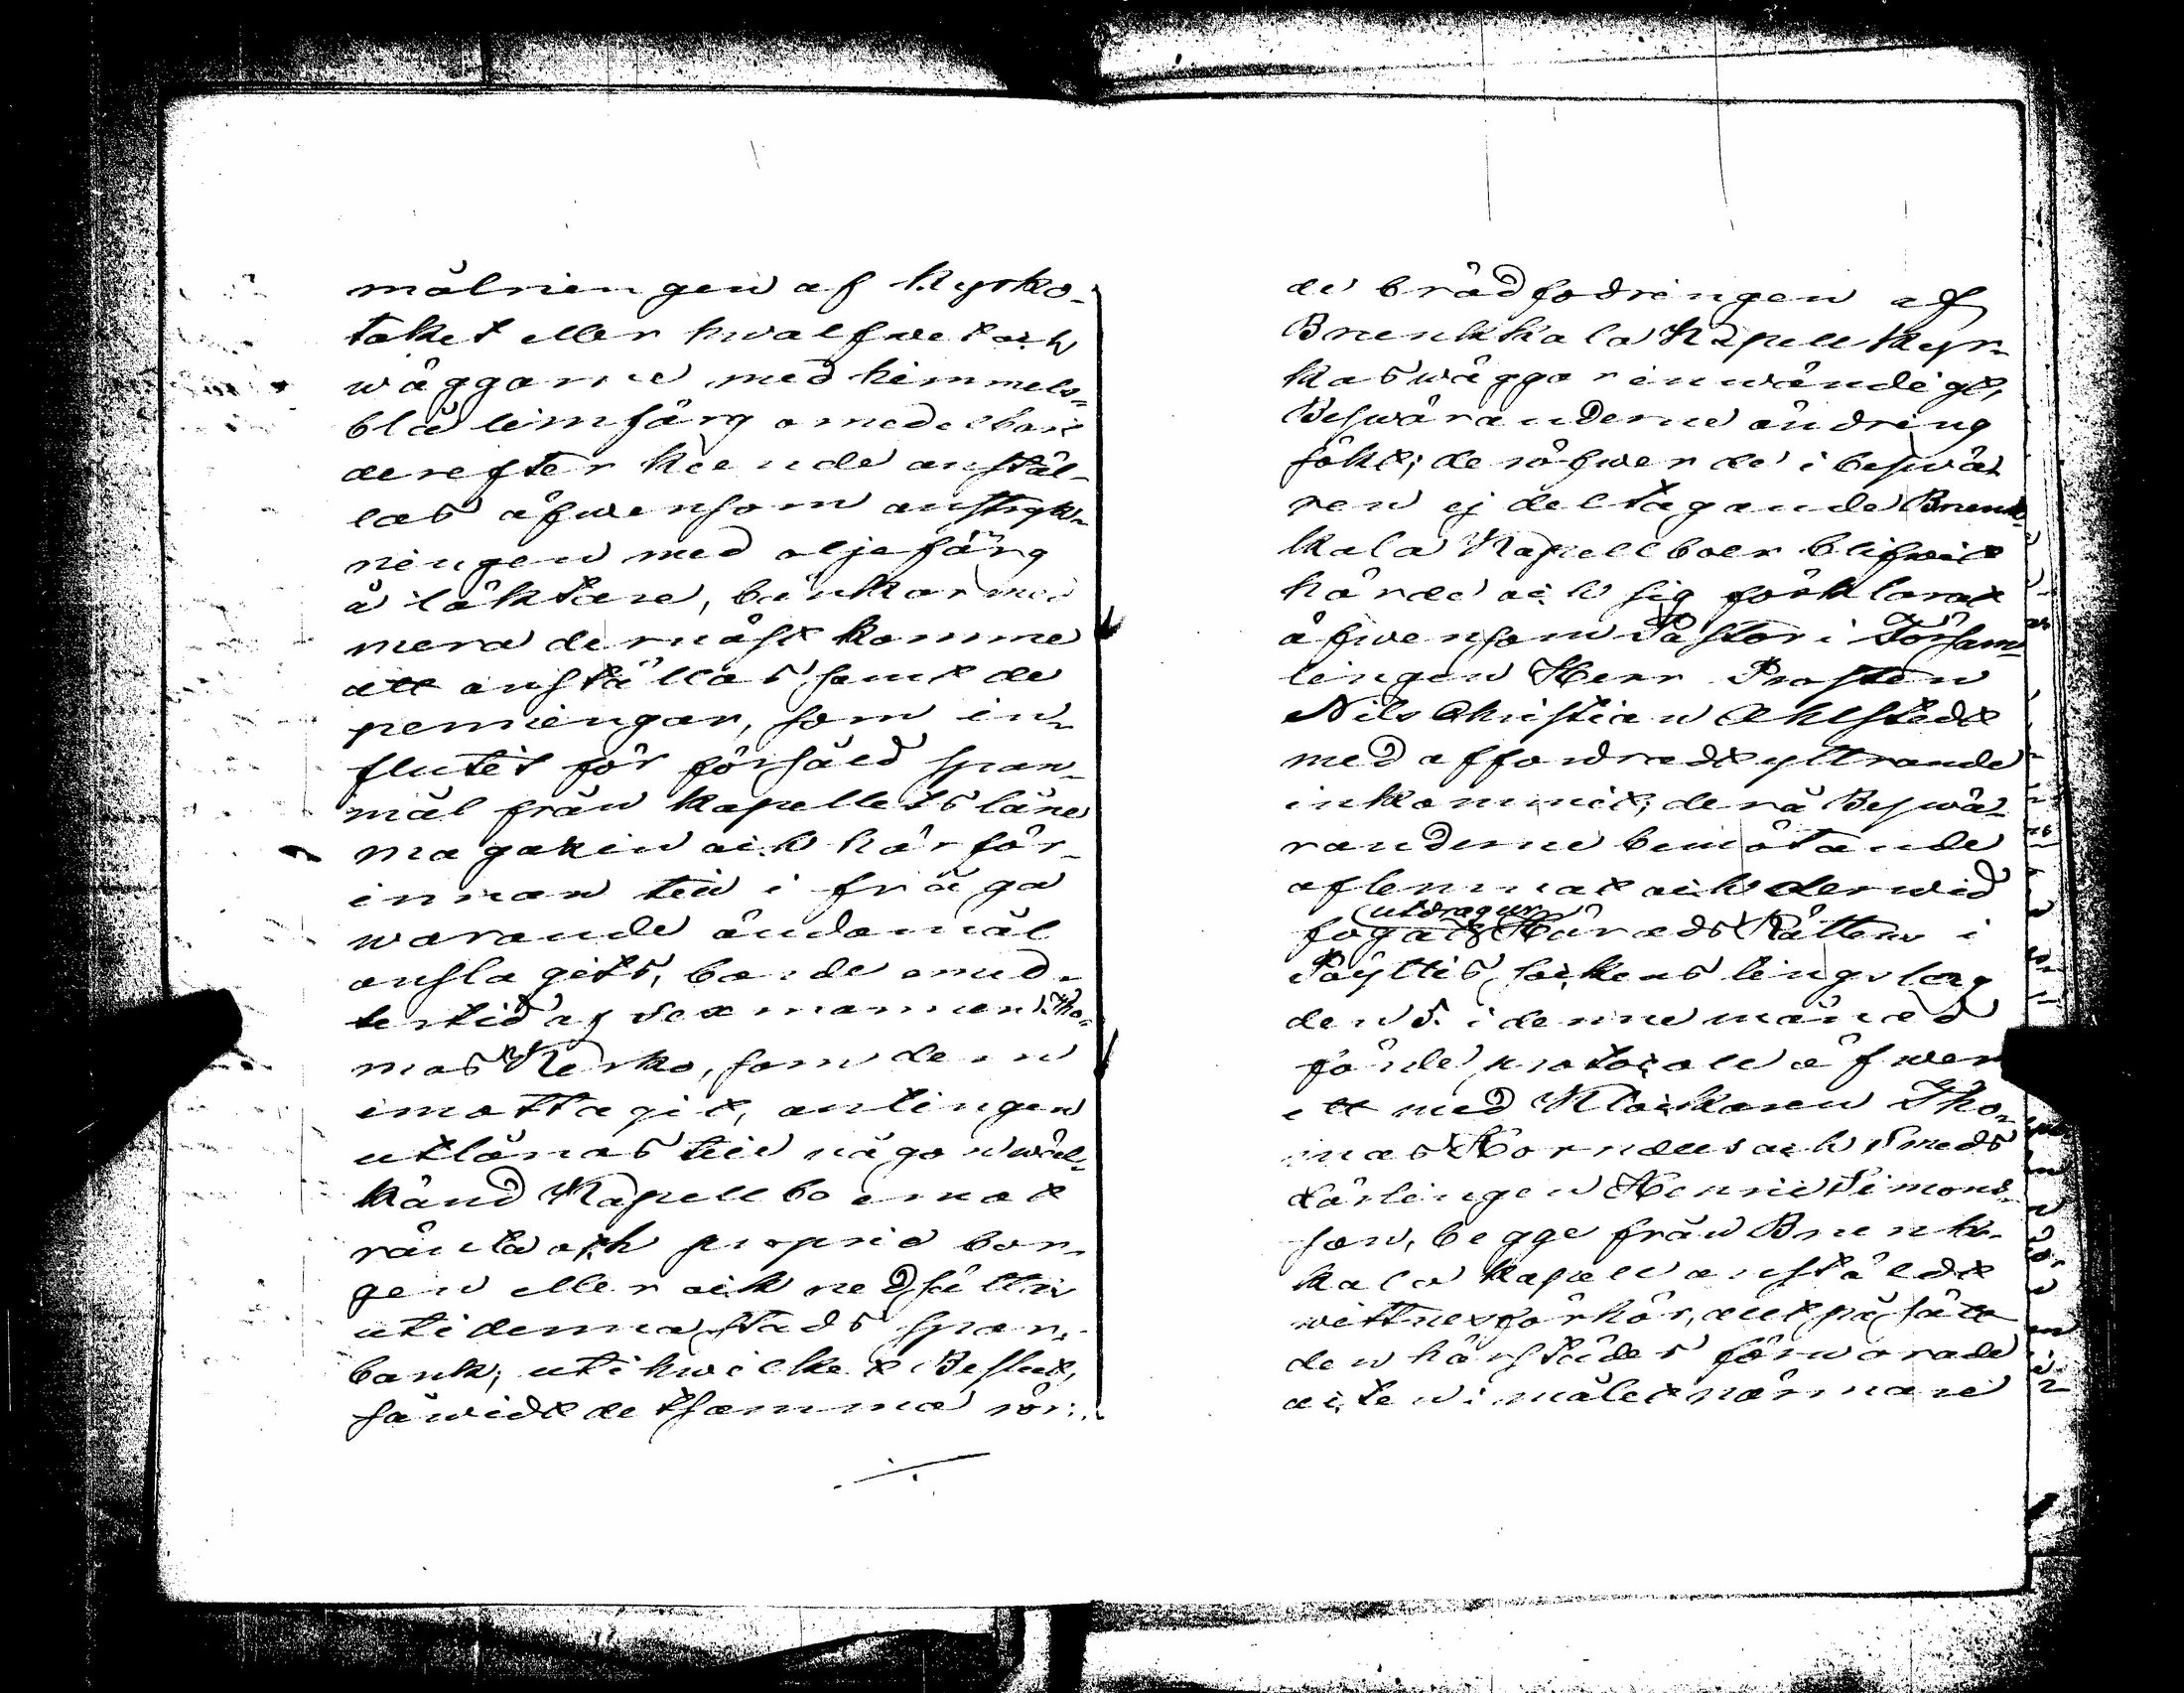 målningen af kyrko-
taket eller hwalfwet och
wäggarne med himmels-
blå limfärg omedelbart
derefter kunde anstäl-
las äfwensom anstryk-
ningen med oljefärg
å läktare, bänkar med
mera dernäst komme
att anställas samt de
penningar, som in-
flutit för försåld span-
mål från kapellets låne
magazin och här för-
innan till i fråga
warande ändamål
anslagits, borde emed-
lertid af Sexmannen Tho-
mas Kerko, som dem
emottagit, antingen
utlånas till någon wäl-
känd Kapellbo emot
ränta och proprie bor-
gen eller ock nedsättas
uti denna stads spar-
bank; uti hwilket Beslut,
såwidt detsamma rör-
de brädfodringen af
Brenkkala Kapell kyr-
kas wäggar inwändigt,
Beswäranderne ändring
sökt; deröfwer de i beswä-
ren ej deltagande Brenk-
kala Kapellboer blifwit
hörde och sig förklarat
äfwensom Pastor i Försam-
lingen Herr Prosten
Nils Christian Ahlstedt
med affordradt yttrande
inkommit; derå Beswä-
randerne bemötande
aflemnat och derwid
utdrag ur
fogadt Härads Rättens i
Pöyttis sockens tingslag
den 5. i denne månad
förde protocoll öfwer
ett med Klockaren Tho-
mas Hornæus och Smeds
Lärlingen Henric Simons-
son, begge från Brenk-
kala kapell anstäldt
wittnesförhör, allt på sätt
den härstädes förwarade
acten i målet närmare